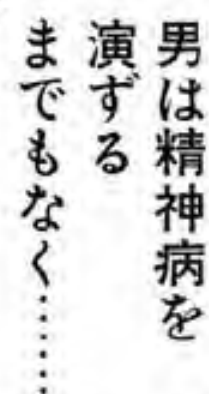 男は精神病を
演ずる
までもなく……